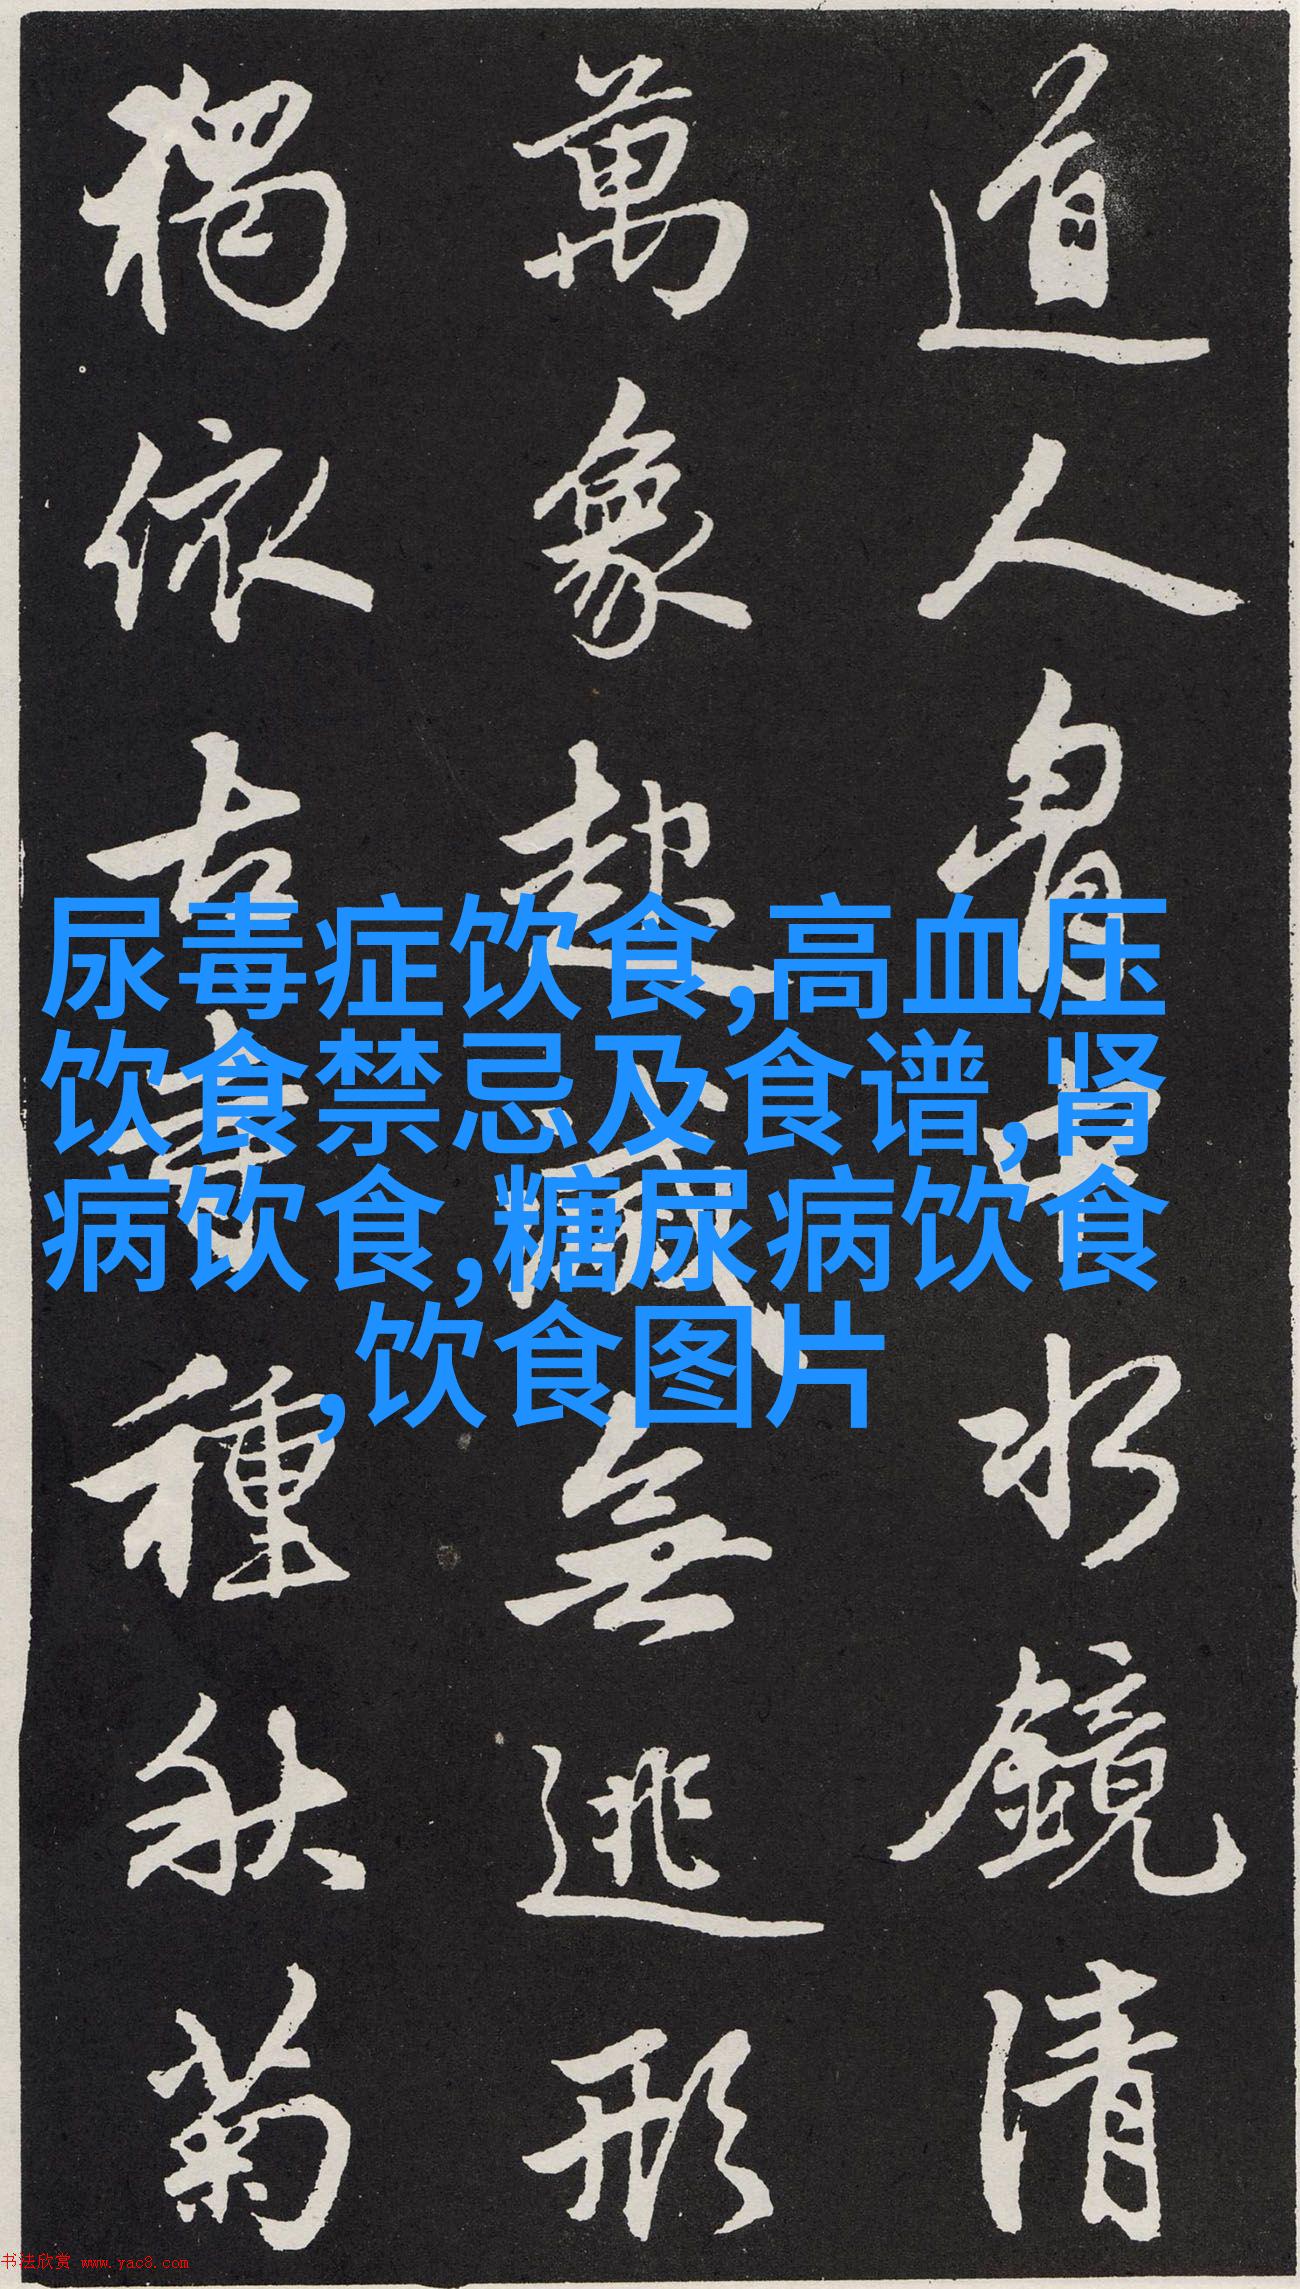 道人胷中水鏡清
萬象起滅無逃形
獨依古寺種秋菊
尿毒症饮食,高血压
饮食禁忌及食谱,肾
病饮食,糖尿病饮食
,饮食图片
书法欣赏 www.yac8.com